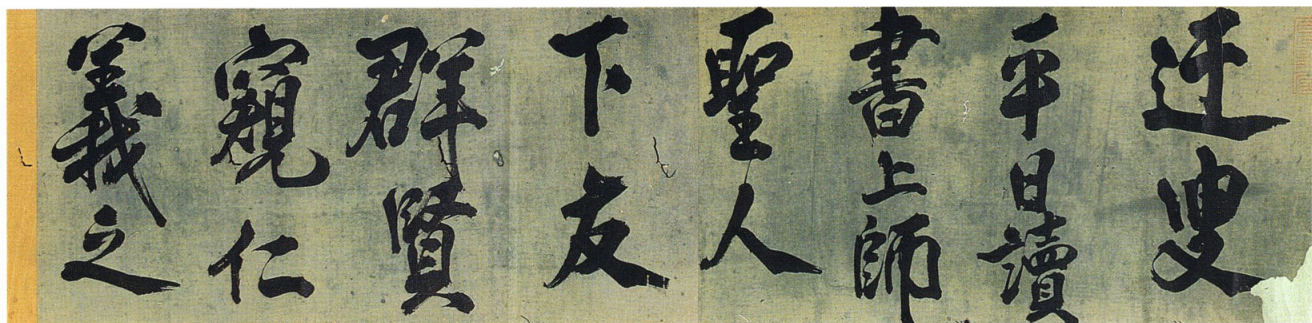 迂叟
平日讀
書上師
聖人
下友
群賢
窺仁
義之